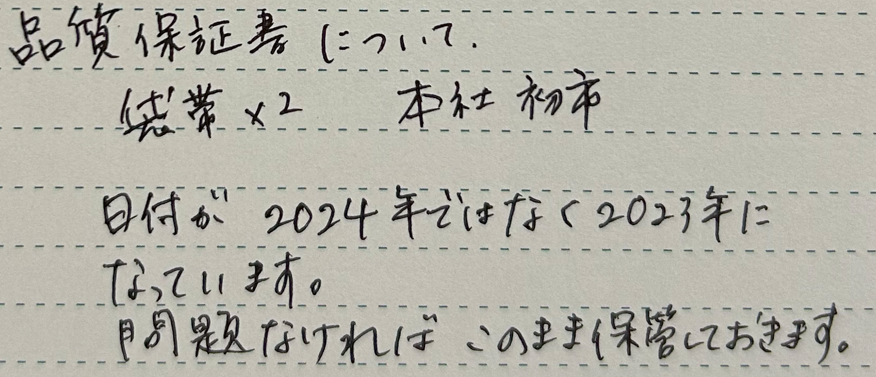 品質保証書について.
袋帯×2 本社 初市
日付が 2024年ではなく2023年に
なっています。
問題なければこのまま保管しておきます。